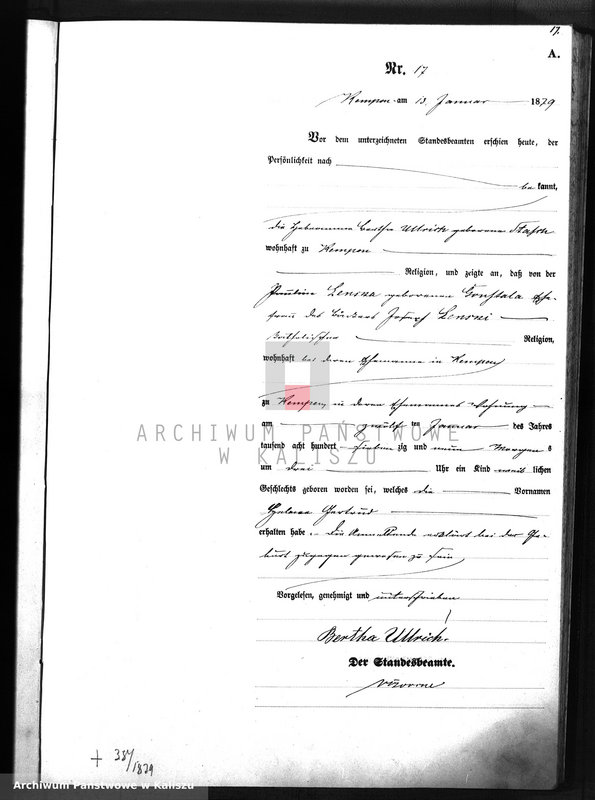 17.
A.
Nr. 17
Kempen am 13. Januar 1879
Vor dem unterzeichneten Standesbeamten erschien heute, der
Persönlichkeit nach
bekannt,
die Hebamme Bertha Ullrich geborene
wohnhaft zu Kempen
Religion, und zeigte an, daß von der
Lenska geborenen Ehe-
frau des Josef Lenski
katholischer Religion,
wohnhaft bei deren Ehemanne in Kempen
zu Kempen in deren Ehemannes Wohnung
am zwölf ten Januar des Jahres
tausend acht hundert sieben zig und neun Morgens
um drei Uhr ein Kind weiblichen
Geschlechts geboren worden sei, welches die Vornamen
Gertrud
erhalten habe. Die erklärt bei der Ge-
burt zugegen gewesen zu sein
Vorgelesen, genehmigt und unterschrieben
Bertha Ullrich.
Der Standesbeamte.
ARCHIWUM PAŃSTWOWE
W KALISZU
+ 387/1879
Archiwum Państwowe w Kaliszu